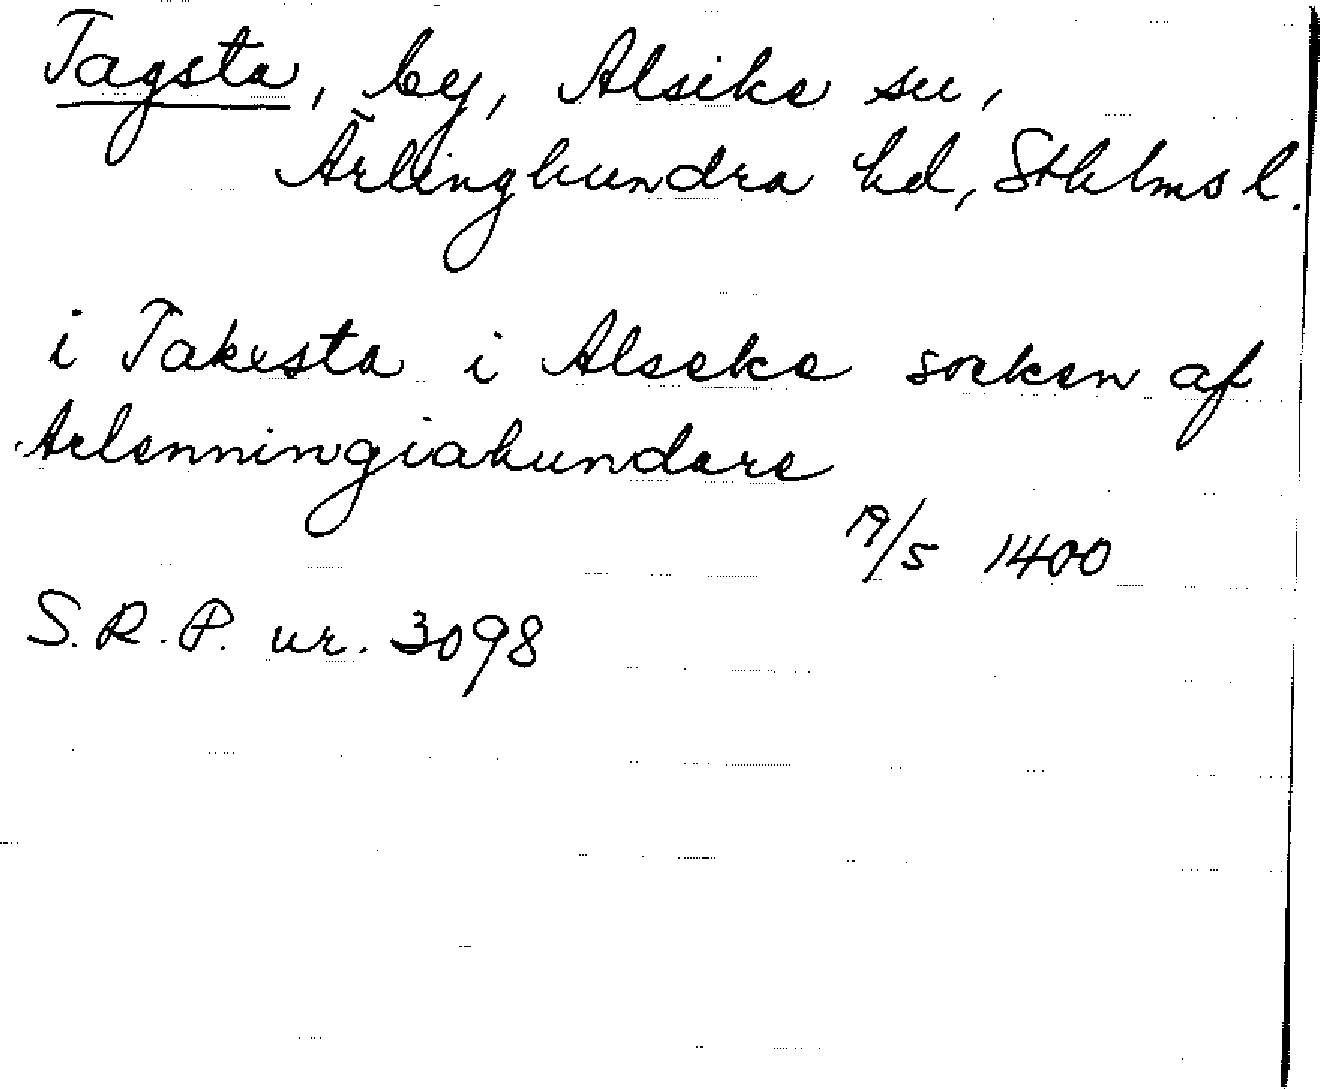 Tagsta, by, Alsike sn,
Ärlinghundra hd, Sthlms l.
i Takesta i Alseke soeken af
Aelenningiahundare
19/5 1400
S.R.P. nr. 3098